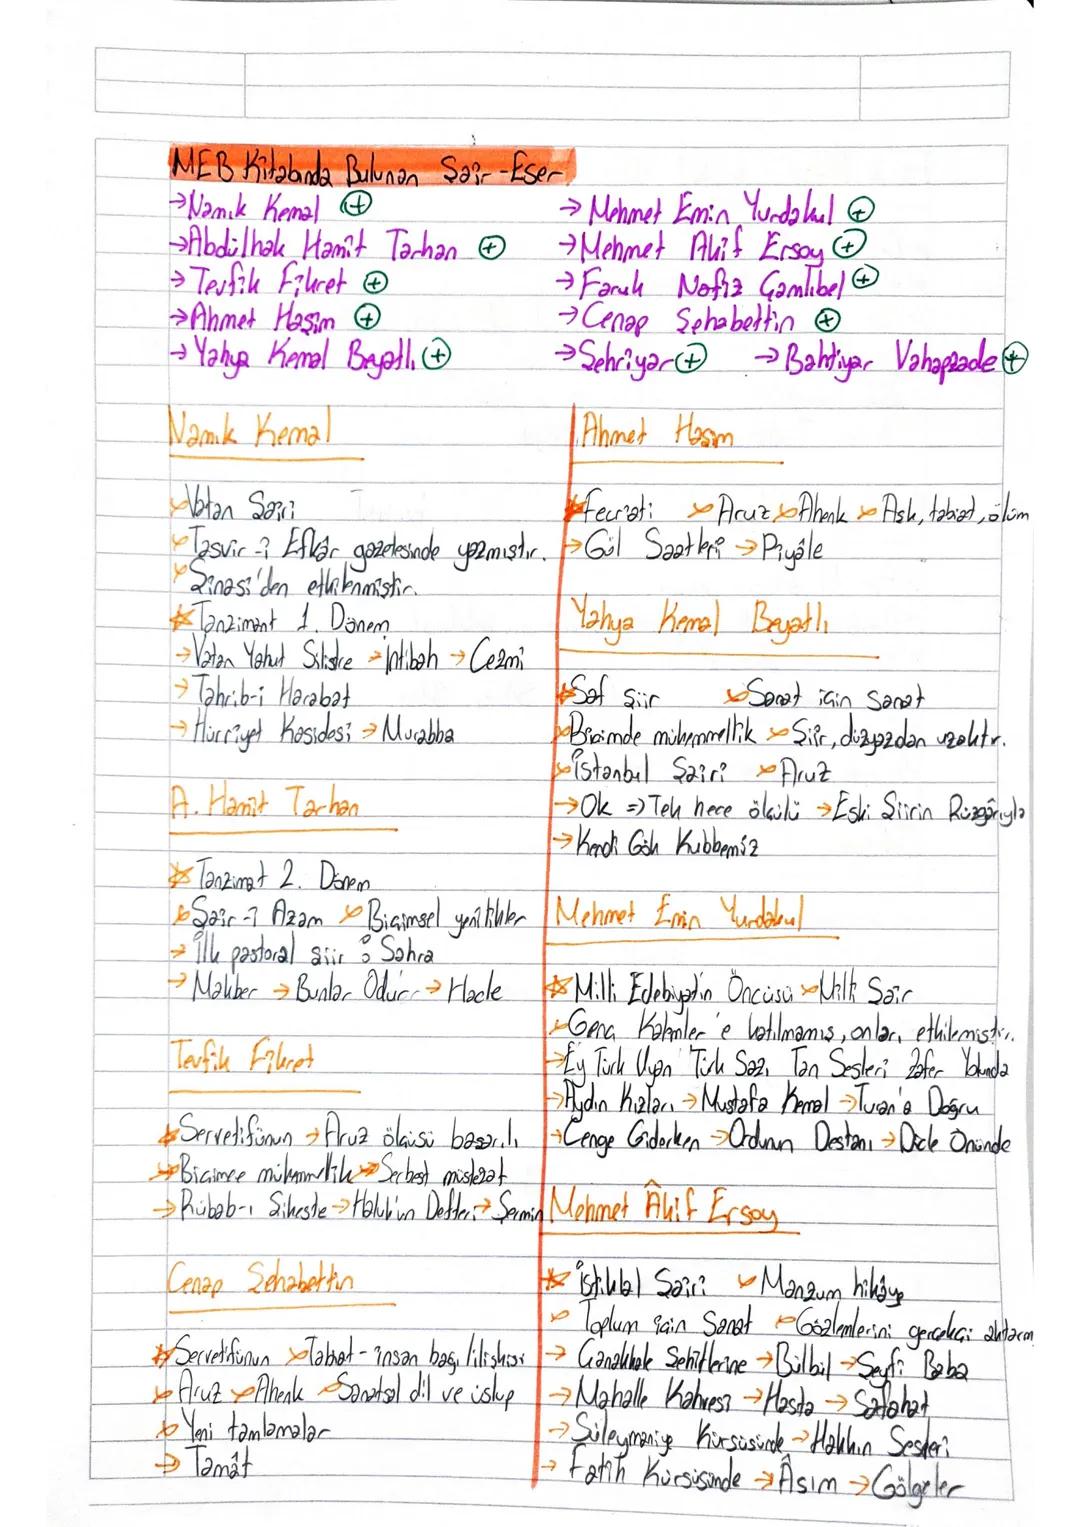 MEB Kitabında Bulunan Şair-Eser
→Namık Kemal +
→Abdülhak Hamit Tarhan +
→Tevfik Fikret +
→Ahmet Haşim +
→Yahya Kemal Beyatlı +
→Mehmet Emin Yurdakul +
→Mehmet Akif Ersoy +
→Faruk Nafiz Çamlıbel +
→Cenap Şehabettin +
→Şehriyar + →Bahtiyar Vahapzade +
Namık Kemal
Vatan Şairi
Tasvir-i Efkâr gazetesinde yazmıştır.
Şinasi'den etkilenmiştir.
Tanzimant 1. Dönem
→Vatan Yahut Silistre →İntibah →Cezmi
→Tahrib-i Harabat
→Hürriyet Kasidesi →Murabba
A. Hamit Tarhan
Tanzimat 2. Dönem
Şair-i Azam Biçimsel yenilikler
→ İlk pastoral şiir: Sahra
→ Makber →Bunlar Odur →Hacle
Tevfik Fikret
Servetifünun →Aruz ölçüsü başarılı
Biçimce mükemmellik Serbest müstezat
→Rübab-ı Şikeste →Haluk'un Defteri →Şermin
Cenap Şehabettin
Servetifünun Tabiat-insan bağı/ilişkisi
Aruz Ahenk Sanatsal dil ve üslup
Yeni tamlamalar
→ Tamât
Ahmet Haşim
Fecriati Aruz Ahenk Aşk, tabiat, ölüm
→Göl Saatleri →Piyâle
Yahya Kemal Beyatlı
Saf şiir Sanat için sanat
Biçimde mükemmellik Şiir, düzyazdan uzaktır.
İstanbul Şairi Aruz
→Ok => Tek hece ölçülü →Eski Şiirin Rüzgârıyla
→Kendi Gök Kubbemiz
Mehmet Emin Yurdakul
Milli Edebiyatın Öncüsü Milli Şair
Genç Kalemler'e katılmamış, onları etkilemiştir.
→Ey Türk Uyan Türk Sazı Tan Sesleri Zafer Yolunda
→Aydın Kızları →Mustafa Kemal →Turan'a Doğru
→Cenge Giderken →Ordunun Destanı →Dicle Önünde
Mehmet Âkif Ersoy
İstiklal Şairi Manzum hikâye
Toplum için Sanat Gözlemlerini gerçekçi
→ Çanakkale Şehitlerine →Bülbül →Seyfi Baba
→Mahalle Kahvesi →Hasta →Safahat
→Süleymaniye Kürsüsünde →Hakkın Sesleri
→ Fatih Kürsüsünde →Âsım →Gölgeler